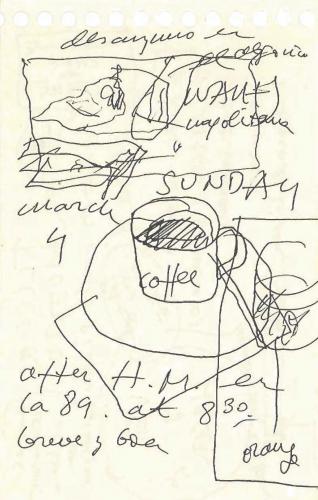 desayuno en
napolitana
SUNDAY
march
4
coffee
after H.M. en
la 89. at 8 30
breve y
orange